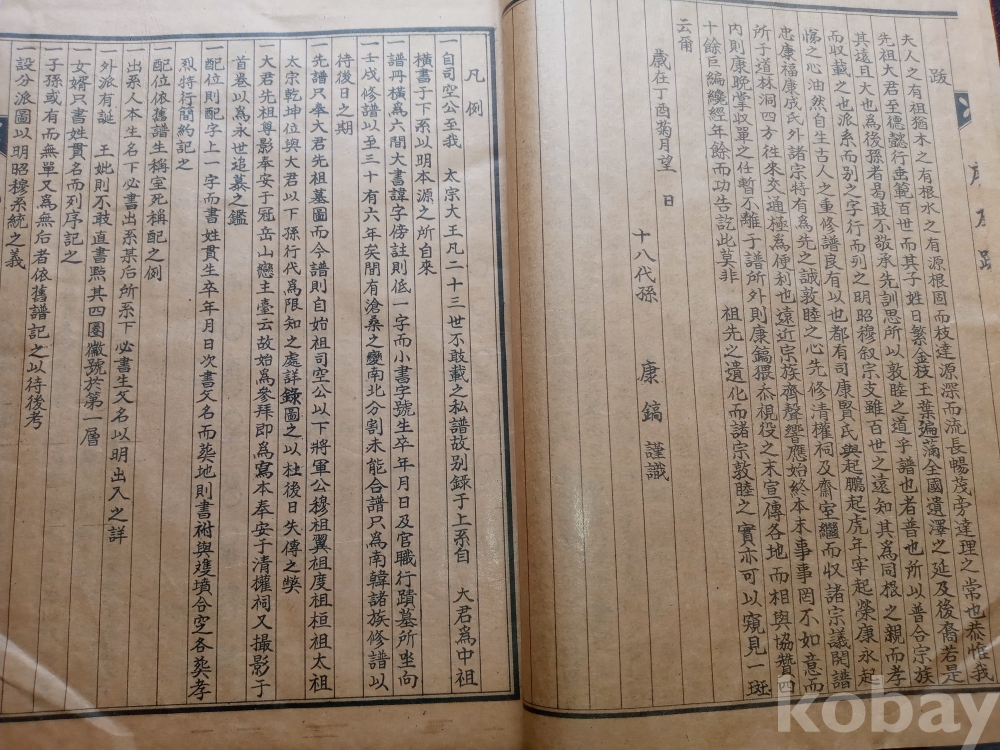 跋
夫人之有祖猶木之有根水之有源根固而枝達源深而流長暢茂旁達理之常也恭惟我
先祖大君至德懿行垂範百世而其子姓日繁金枝玉葉遍滿全國遺澤之延及後裔若是
其遠且大也為後孫者曷敢不敬承先訓思所以敦睦之道乎譜也者普也所以普合宗族
而收載之也派系而别之字行而列之明昭穆叙宗支雖百世之遠知其為同根之親而孝
悌之心油然自生古人之重修譜良有以也都有司康賢氏與起鵬起虎年宰起榮康永起
忠康福康成氏外諸宗特有為先之誠敦睦之心先修清權祠及齋室繼而収諸宗議開譜
所于道林洞四方往來交通極為便利也遠近宗族齊聲響應始終本末事事罔不如意而
内則康晚掌收單之任暫不離于譜所外則康鎬猥忝視役之末宣傳各地而相與協贊四
十餘巨編纔經年餘而功告訖此莫非 祖先之遺化而諸宗敦睦之實亦可以窺見一斑
云爾
歲在丁酉菊月望 日
十八代孫 康鎬 謹識
凡例
一自司空公至我 太宗大王凡二十三世不敢載之私譜故别錄于上系自 大君為中祖
橫書于下系以明本源之所自來
一譜冊橫為六間大書諱字傍註則低一字而小書字號生卒年月日及官職行蹟墓所坐向
一壬戌修譜以至三十有六年矣間有滄桑之變南北分割未能合譜只為南韓諸族修譜以
待後日之期
一先譜只奉大君先祖墓圖而今譜則自始祖司空公以下將軍公穆祖翼祖度祖桓祖太祖
太宗乾坤位與大君以下孫行代為限知之處詳錄圖之以杜後日失傳之獘
一大君先祖尊影奉安于冠岳山戀主臺云故始為參拜即為寫本奉安于清權祠又撮影于
首卷以為永世追慕之鑑
一配位則配字上一字而書姓貫生卒年月日次書父名而葬地則書祔與雙墳合窆各葬孝
烈特行簡約記之
一配位依舊譜生稱室死稱配之例
一出系人本生名下必書出系某后所系下必書生父名以明出入之詳
一外派有誕 王妣則不敢直書點其四圈徽號於第一層
一女婿只書姓貫名而列序記之
一子孫或有而無單又為無后者依舊譜記之以待後考
一設分派圖以明昭穆系統之義
kobay